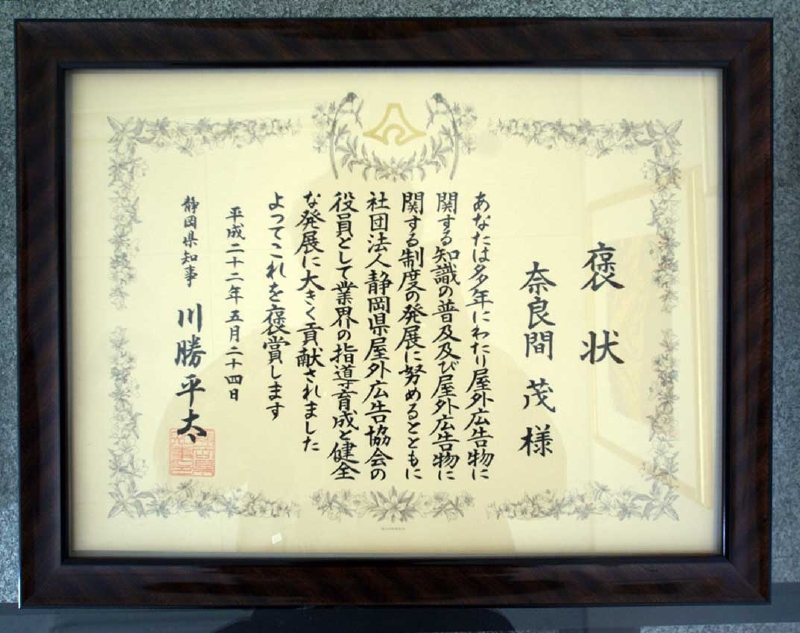 褒状
奈良間 茂 様
あなたは多年にわたり屋外広告物に
関する知識の普及及び屋外広告物に
関する制度の発展に努めるとともに
社団法人静岡県屋外広告協会の
役員として業界の指導育成と健全
な発展に大きく貢献されました
よってこれを褒賞します
平成二十二年五月二十四日
静岡県知事 川勝平太